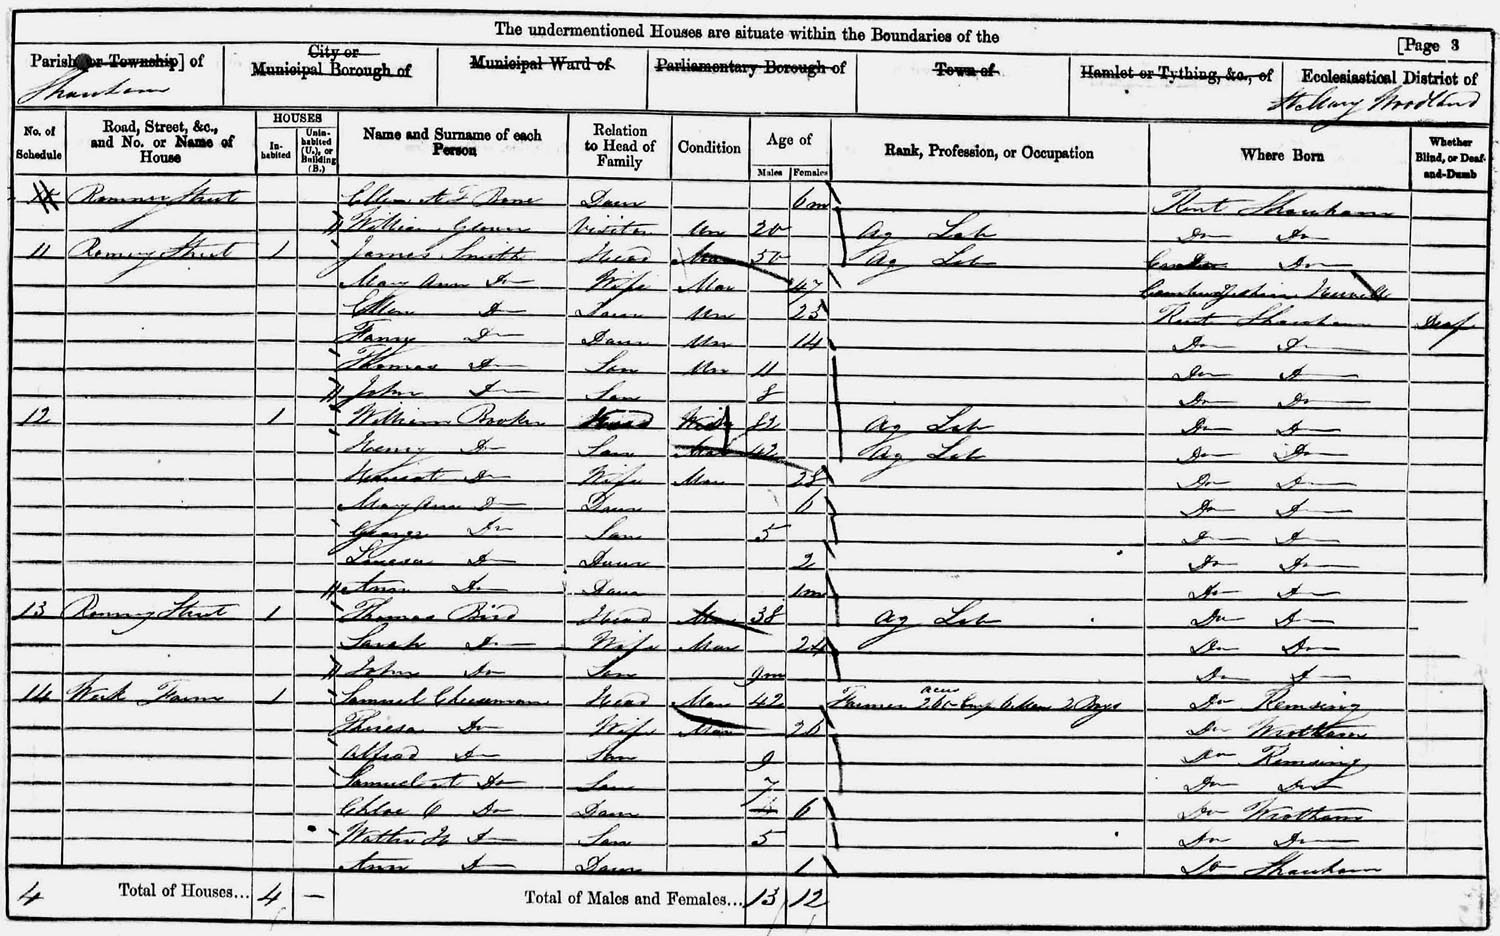 The undermentioned Houses are situate within the Boundaries of the
[Page 3
Parish [or Township] of
Shoreham
City or Municipal Borough of
Municipal Ward of
Parliamentary Borough of
Town of
Hamlet or Tything, &c., of
Ecclesiastical District of
St Mary Woodland
No. of Schedule
Road, Street, &c., and No. or Name of House
HOUSES
In-habited
Unin-habited (U.), or Building (B.)
Name and Surname of each Person
Relation to Head of Family
Condition
Age of
Males
Females
Rank, Profession, or Occupation
Where Born
Whether Blind, or Deaf-and-Dumb
Romney Street Ellen A F Bone Daur 6m Kent Shoreham
William Glover Visitor Un 20 Ag Lab Do Do
11 Romney Street 1 James Smith Head Mar 50 Ag Lab Do
Mary Ann Do Wife Mar 47 Cambridgeshire
Ellen Do Daur Un 25 Kent Shoreham Deaf
Fanny Do Daur Un 14 Do Do
Thomas Do Son Un 11 Do Do
John Do Son 8 Do Do
12 1 William Broker Head Widr 82 Ag Lab Do Do
Henry Do Son Mar 42 Ag Lab Do Do
Harriet Do Wife Mar 28 Do Do
Mary Ann Do Daur 6 Do Do
George Do Son 5 Do Do
Louisa Do Daur 2 Do Do
Ann Do Daur 1m Do Do
13 Romney Street 1 Thomas Bird Head Mar 38 Ag Lab Do Do
Sarah Do Wife Mar 24 Do Do
John Do Son 9m Do Do
14 Farm 1 Samuel Cheeseman Head Mar 42 Farmer 260 acres Emp 6 Men 2 Boys Do Kemsing
Theresa Do Wife Mar Do Wrotham
Alfred Do Son 9 Do Kemsing
Samuel A Do Son 7 Do Do
Chloe C Do Daur 6 Do Wrotham
Walter H Do Son 5 Do Do
Ann Do Daur 1 Do Shoreham
4 Total of Houses... 4 — Total of Males and Females... 13 12